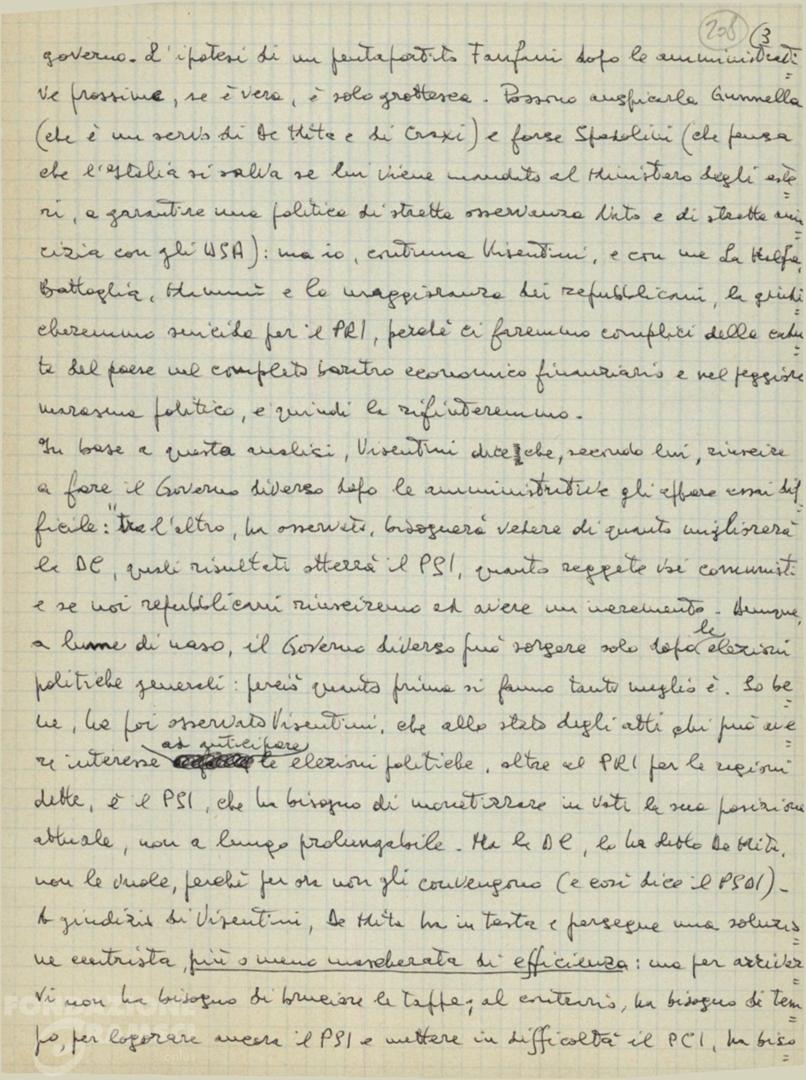 208 (3
governo. L'ipotesi di un pentapartito Fanfani dopo le amministrati=
ve prossime, se è vera, è solo grottesca. Possono auspicarla Gunnella
(che è un servo di De Mita e di Craxi) e forse Spadolini (che pensa
che l'Italia si salva se lui viene mandato al Ministero degli este=
ri, a garantire una politica di stretta osservanza Nato e di stretta ami=
cizia con gli USA): ma io, continua Visentini, e con me La Malfa,
Battaglia, Mammì e la maggioranza dei repubblicani, la giudi=
cheremmo suicida per il PRI, perché ci faremmo complici della cadu=
ta del paese nel completo baratro economico finanziario e nel peggiore
marasma politico, e quindi la rifiuteremmo.
In base a questa analisi, Visentini dice che, secondo lui, riuscire
a fare il Governo diverso dopo le amministrative gli appare assai dif=
ficile: "tra l'altro, ha osservato, bisognerà vedere di quanto migliorerà
la DC, quali risultati otterrà il PSI, quanto reggete voi comunisti
e se noi repubblicani riusciremo ad avere un incremento. Dunque,
a lume di naso, il Governo diverso può sorgere solo dopo le elezioni
politiche generali: perciò quanto prima si fanno tanto meglio è. So be=
ne, ha poi osservato Visentini, che allo stato degli atti chi può ave=
re interesse ad anticipare le elezioni politiche, oltre al PRI per le ragioni
dette, è il PSI, che ha bisogno di monetizzare in voti la sua posizione
attuale, non a lungo prolungabile. Ma la DC, lo ha detto De Mita,
non le vuole, perché per ora non gli convengono (e così dice il PSDI).
A giudizio di Visentini, De Mita ha in testa e persegue una soluzio=
ne centrista, più o meno mascherata di efficienza: ma per arrivar=
vi non ha bisogno di bruciare le tappe; al contrario, ha bisogno di tem=
po, per logorare ancora il PSI e mettere in difficoltà il PCI, ha biso=